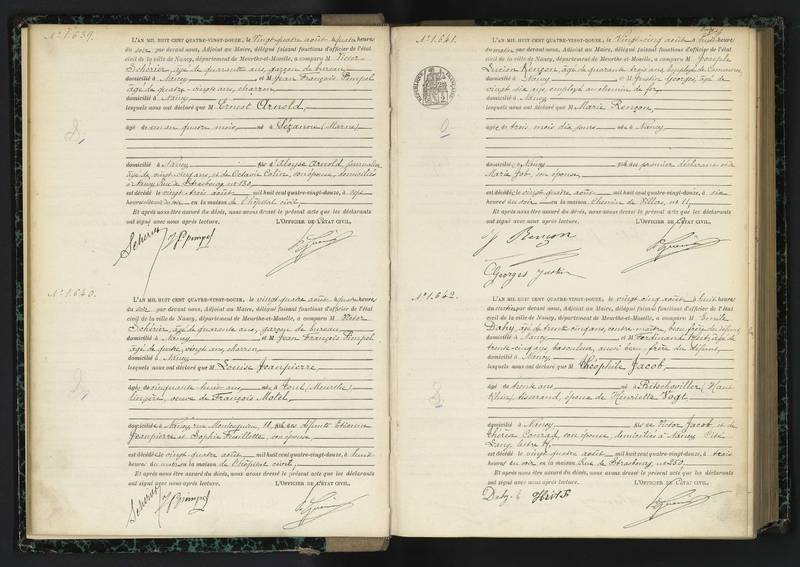 N° 1.639.
L'AN MIL HUIT CENT QUATRE-VINGT-DOUZE, le Vingt-quatre août à quatre heures
du soir par devant nous, Adjoint au Maire, délégué faisant fonctions d'officier de l'état
civil de la ville de Nancy, département de Meurthe-et-Moselle, a comparu M Victor
Schérier, âgé de quarante ans, garçon de bureau
domicilié à Nancy et M Jean François Pimpel
âgé de quatre-vingts ans, charron
domicilié à Nancy
lesquels nous ont déclaré que M Ernest Arnold,
âgé de un an quatre mois, né à Sézanne (Marne)
domicilié à Nancy fils d'Aloyse Arnold, journalier
âgé de vingt cinq ans, et de Octavie Colin, son épouse, domiciliés
à Nancy, rue de Strasbourg n° 130,
est décédé le vingt trois août mil huit cent quatre-vingt-douze, à sept
heures du soir en la maison de l'hôpital civil,
Et après nous être assuré du décès, nous avons dressé le présent acte que les déclarants
ont signé avec nous après lecture. L'OFFICIER DE L'ÉTAT CIVIL,
N° 1.640.
L'AN MIL HUIT CENT QUATRE-VINGT-DOUZE, le vingt quatre août à quatre heures
du soir par devant nous, Adjoint au Maire, délégué faisant fonctions d'officier de l'état
civil de la ville de Nancy, département de Meurthe-et-Moselle, a comparu M Victor
Schérier, âgé de quarante ans, garçon de bureau
domicilié à Nancy et M Jean François Pimpel
âgé de quatre vingts ans, charron
domicilié à Nancy
lesquels nous ont déclaré que M Louise Jeanpierre,
âgée de cinquante huit ans née à Toul (Meurthe)
lingère, veuve de François Motel,
domiciliée à Nancy, rue Montesquieu, 11, fille des défunts Etienne
Jeanpierre et Sophie Feuillette, son épouse,
est décédée le vingt quatre août mil huit cent quatre-vingt-douze, à huit
heures du matin en la maison de l'hôpital civil,
Et après nous être assuré du décès, nous avons dressé le présent acte que les déclarants
ont signé avec nous après lecture. L'OFFICIER DE L'ÉTAT CIVIL,
N° 1.641.
L'AN MIL HUIT CENT QUATRE-VINGT-DOUZE, le Vingt-cinq août à huit heures
du matin par devant nous, Adjoint au Maire, délégué faisant fonctions d'officier de l'état
civil de la ville de Nancy, département de Meurthe-et-Moselle, a comparu M Joseph
Lucien Rençon, âgé de quarante trois ans, employé de commerce
domicilié à Nancy et M Justin Georges, âgé de
vingt six ans, employé au chemin de fer,
domicilié à Nancy
lesquels nous ont déclaré que M Marie Rençon,
âgée de trois mois dix jours née à Nancy
domiciliée à Nancy fille du premier déclarant et de
Marie Job, son épouse,
est décédée le vingt quatre août mil huit cent quatre-vingt-douze, à six
heures du soir en la maison Chemin de Villers, n° 11,
Et après nous être assuré du décès, nous avons dressé le présent acte que les déclarants
ont signé avec nous après lecture. L'OFFICIER DE L'ÉTAT CIVIL,
Rençon
Georges Justin
N° 1.642.
L'AN MIL HUIT CENT QUATRE-VINGT-DOUZE, le vingt cinq août à huit heures
du matin par devant nous, Adjoint au Maire, délégué faisant fonctions d'officier de l'état
civil de la ville de Nancy, département de Meurthe-et-Moselle, a comparu M Emile
Dahy, âgé de trente cinq ans, contre-maître, beau frère du défunt
domicilié à Nancy et M Ferdinand âgé de
trente-cinq ans, aussi beau frère du défunt,
domicilié à Nancy
lesquels nous ont déclaré que M Théophile Jacob,
âgé de trente ans né à Bitschwiller (Haut
Rhin), tisserand, époux de Henriette Vogt,
domicilié à Nancy fils de Victor Jacob, et de
Thérèse Conrad, son épouse, domiciliés à Nancy
est décédé le vingt quatre août mil huit cent quatre-vingt-douze, à trois
heures du soir en la maison Rue de Strasbourg n° 250
Et après nous être assuré du décès, nous avons dressé le présent acte que les déclarants
ont signé avec nous après lecture. L'OFFICIER DE L'ÉTAT CIVIL,